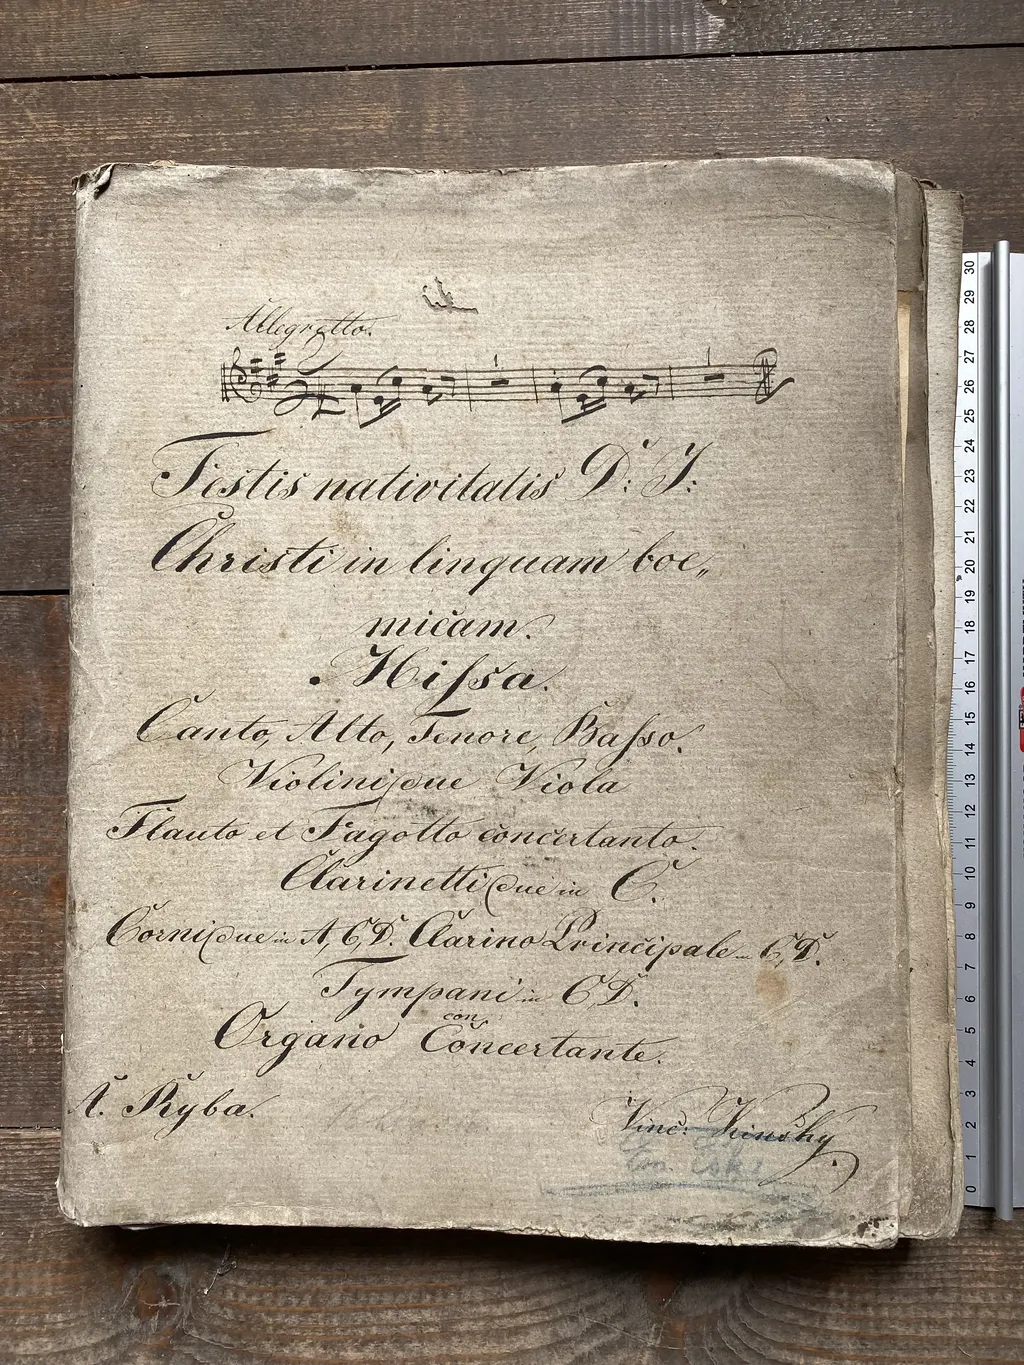 Allegretto.
Festis nativitatis D: J:
Christi in linquam boe„
mičam.
Missa.
Canto, Alto, Tenore, Basso.
Violini due Viola
Flauto et Fagotto concertanto.
Clarinetti due in C.
Corni due in A, C, D. Clarino Principale in C, D.
Tympani in C D.
con
Organo Concertante.
Ryba.
Vinc: Kinský.
30
29
28
27
26
25
24
23
22
21
20
19
18
17
16
15
14
13
12
11
10
9
8
7
6
5
4
3
2
1
0